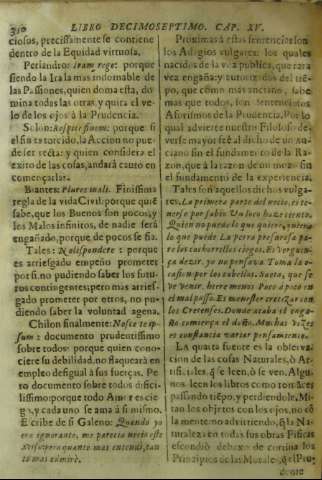 310 LIBRO DECIMOSEPTIMO. CAP. XV.
ciosus, precissamente se contiene
dentro de la Equidad virtuosa.
Periandro: Iram rege: porque
siendo la Ira la mas indomable de
las Passiones, quien doma esta, do
mina todas las otras y quita el ve
lo de los ojos à la Prudencia.
Solon: Respice finem: porque si
el fin es torcido, la Accion no pue
de ser recta: y quien considera el
exito de las cosas, andarà cauto en
començarlas.
Biantes: Plures mali. Finissima
regla de la vida Civil: porque quiē
sabe, que los Buenos son pocos, y
los Malos infinitos, de nadie serà
engañado, porque de pocos se fia.
Tales: Noli spondere: porque
es arriesgado empeño prometer
por si, no pudiendo saber los futu
ros contingentes; pero mas arries-
gado prometer por otros, no pu-
diendo saber la voluntad agena.
Chilon finalmente: Nosce te ip-
sum: documento prudentissimo
sobre todos: porque quien cono-
ciere su debilidad, no flaquearà en
empleo desigual à sus fuerças. Pe
ro documento sobre todos dificí-
lissimo: porque todo Amor es cie
go, y cada uno se ama à si mismo.
Escribe de si Galeno: Quando yo
era ignorante, me parecia necio este
mas entendi, tan
to mas admirè.
Proximas à estas sentencias son
los Adagios vulgares: los quales
nacidos de la voz publica, que rara
vez engaña: y autorizados del tiē-
po, que como mas anciano, sabe
mas que todos, son sentenciosos
Aforismos de la Prudencia. Por lo
qual advierte nuestro Filosofo de-
verse mayor feè al dicho de un An-
ciano sin el fundamento de la Ra-
zon, que à la razon de un mozo sin
el fundamento de la experiencia.
Tales son aquellos dichos vulga-
res. La primera parte del necio, es te-
nerse por sabio. Un loco haze ciento.
Quien no puede lo que quiere, quiera
lo que puede. La perra presurosa pa-
re los cachorrillos ciegos. Es verguen-
ça dezir, yo no pensava. Toma la o-
casion por los cabellos. Saeta, que se
vè venir, hiere menos. Poco à poco en
el mal passo. Es menester cretizar con
los Cretenses. Donde acaba el enga-
ño comiença el daño. Muchas vezes
es constancia variar pensamiento.
La quarta fuente es la observa-
cion de las cosas Naturales, ò Ar-
tificiales, q̄ se leen, ò se ven. Algu-
nos leen los libros
passando tiēpo, y perdiendole. Mi-
ran los objetos con los ojos, no cō
la mente: no advirtiendo, q̄ la Na-
turaleza en todas sus obras Fisicas
escondiò debaxo de cortina los
Principios de las Morales,